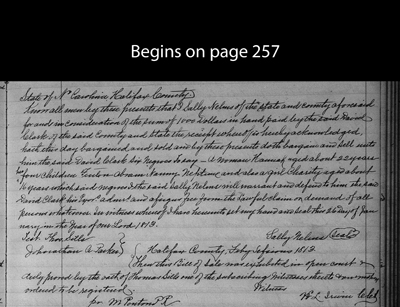 Begins on page 257
State of No Carolina Halifax County
Know all men by these presents that I Sally Nelms of the state and county aforesaid
for and in consideration of the sum of 1000 dollars in hand paid by the said David
Clark of the said County and State the receipt whereof is hereby acknowledged,
hath this day bargained and sold and by these presents doth bargain and sell unto
him the said David Clark six Negroes to say - A woman Hannah aged about 22 years
four children Abram Fanny Neptune and also a girl Charity aged about
16 years which said negroes I the said Sally Nelms will warrant and defend to him the said
David Clark his and assigns free from the lawful claim or demand of all
persons whatsoever. In witness whereof I have hereunto set my hand and seal this 26 day of Jan
uary in the Year of our Lord 1813.
Sally Nelms Seal
Test. Thos. Sills
Johnathan A. Parker
Halifax County, Feby Session 1813
Then this Bill of Sale was exhibited in open court &
duly proved by the oath of Thomas Sills one of the subscribing Witnesses thereto was
ordered to be registered. Witness
pr M. Ponton P.R.